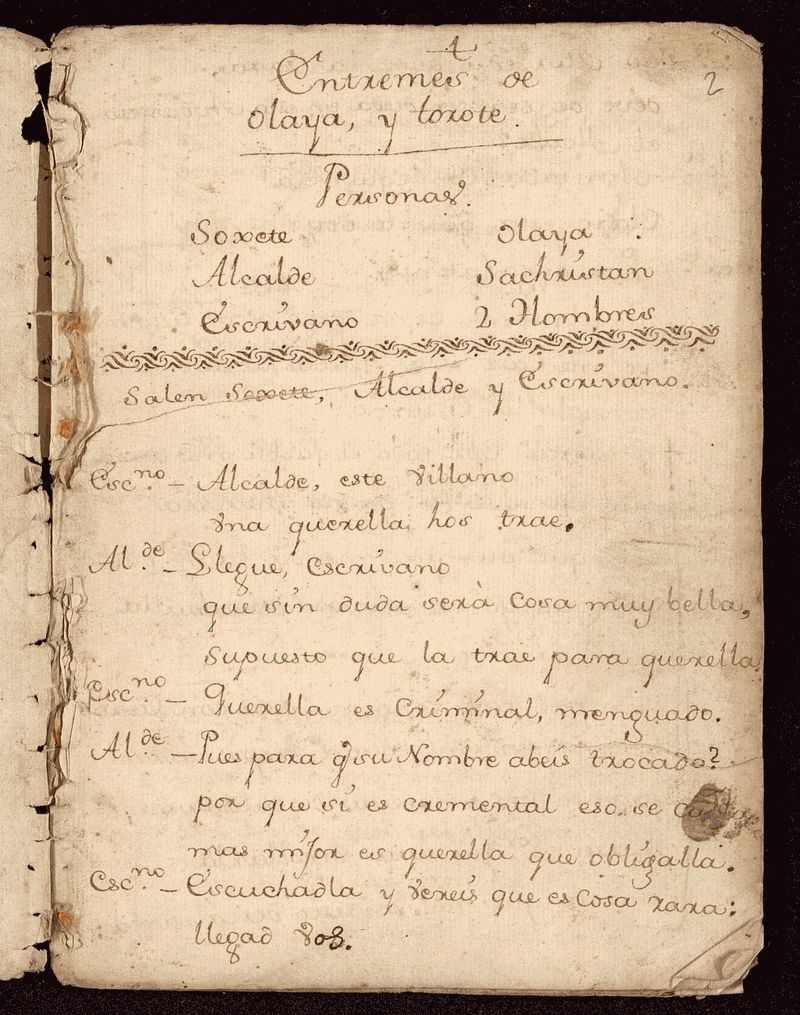 2
Entremes de
Olaya, y torote.
Personas.
Soxete Olaya
Alcalde Sachristan
Escrivano 2 Hombres
Salen Soxete, Alcalde y Escrivano.
Escno. – Alcalde, este Villano
vna querella hos trae.
Alde. – Llegue, Escrivano
que sin duda serà cosa muy bella,
supuesto que la trae para querella
Escno. – Querella es Criminal, menguado.
Alde. – Pues para q su Nombre abeis trocado?
por que si es cremental eso se
mas mijor es querella que obligalla.
Escno. – Escuchadla y vereis que es Cosa rara:
llegad vos.